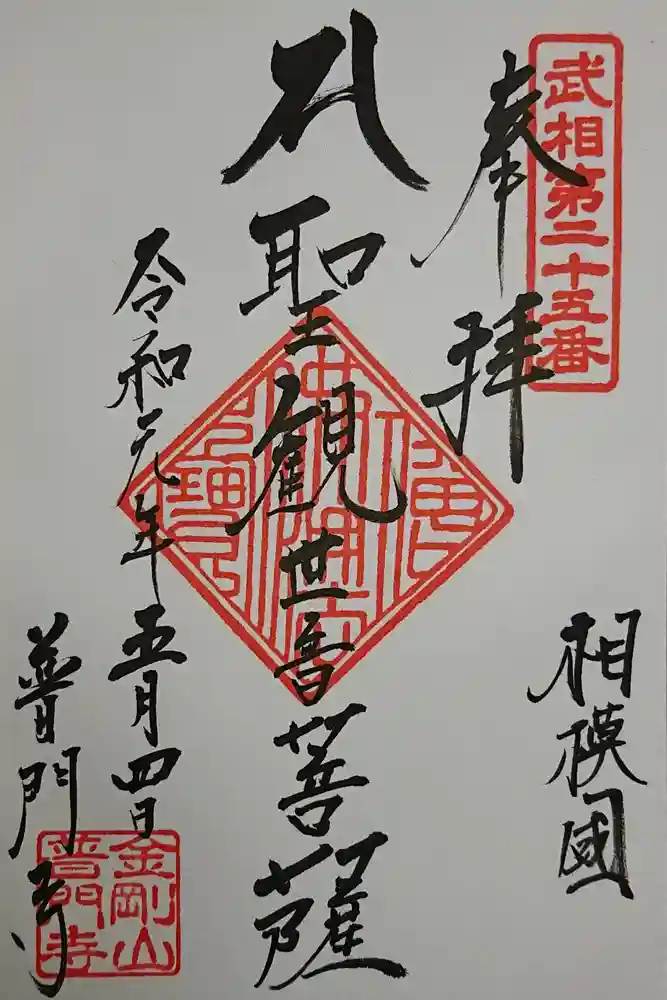 武相第二十五番
奉拝
相模國
聖観世音菩薩
令和元年五月四日
普門寺
金剛山
普門寺